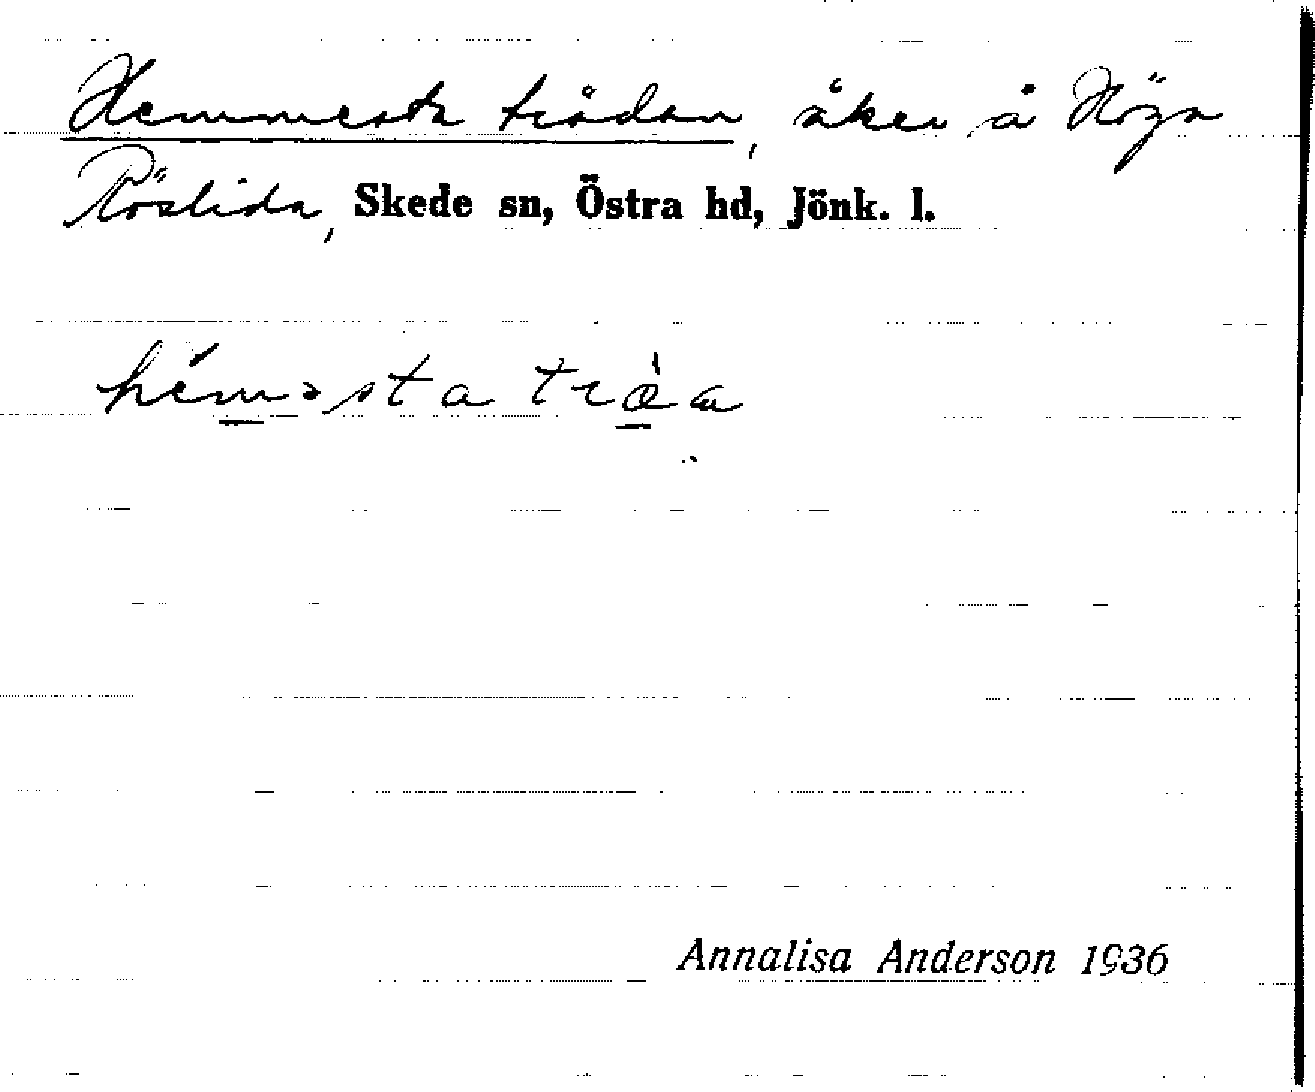 Hemmesta trådan, åker å Höga
Röslida, Skede sn, Östra hd, Jönk. l.
hémesta tråa
Annalisa Anderson 1936